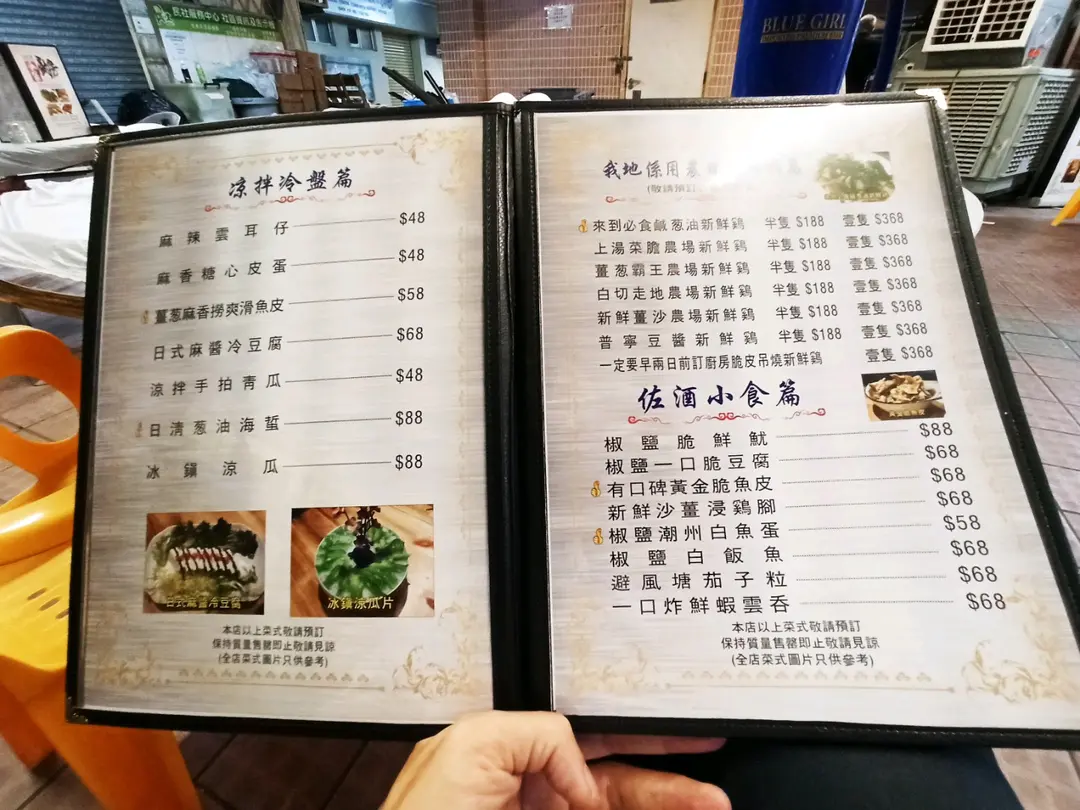 民社服務中心 社區資訊及告示板
BLUE GIRL
凉拌冷盤篇
麻辣雲耳仔 $48
麻香糖心皮蛋 $48
薑葱麻香撈爽滑魚皮 $58
日式麻醬冷豆腐 $68
涼拌手拍青瓜 $48
日清葱油海蜇 $88
冰鎮涼瓜 $88
日式麻醬冷豆腐
冰鎮涼瓜片
本店以上菜式敬請預訂
保持質量售罄即止敬請見諒
(全店菜式圖片只供參考)
我地係用農 篇
(敬請預訂
來到必食鹹葱油新鮮鷄 半隻 $188 壹隻 $368
上湯菜膽農場新鮮鷄 半隻 $188 壹隻 $368
薑葱霸王農場新鮮鷄 半隻 $188 壹隻 $368
白切走地農場新鮮鷄 半隻 $188 壹隻 $368
新鮮薑沙農場新鮮鷄 半隻 $188 壹隻 $368
普寧豆醬新鮮鷄 半隻 $188 壹隻 $368
一定要早兩日前訂廚房脆皮吊燒新鮮鷄 壹隻 $368
佐酒小食篇
椒鹽脆鮮魷 $88
椒鹽一口脆豆腐 $68
有口碑黃金脆魚皮 $68
新鮮沙薑浸鷄腳 $68
椒鹽潮州白魚蛋 $58
椒鹽白飯魚 $68
避風塘茄子粒 $68
一口炸鮮蝦雲吞 $68
本店以上菜式敬請預訂
保持質量售罄即止敬請見諒
(全店菜式圖片只供參考)